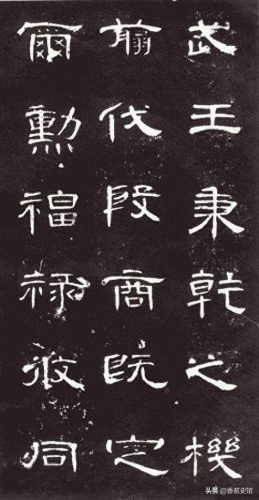 武王秉乾之機
翦伐殷商既定
爾勳福祿攸同
头条@香茗史馆